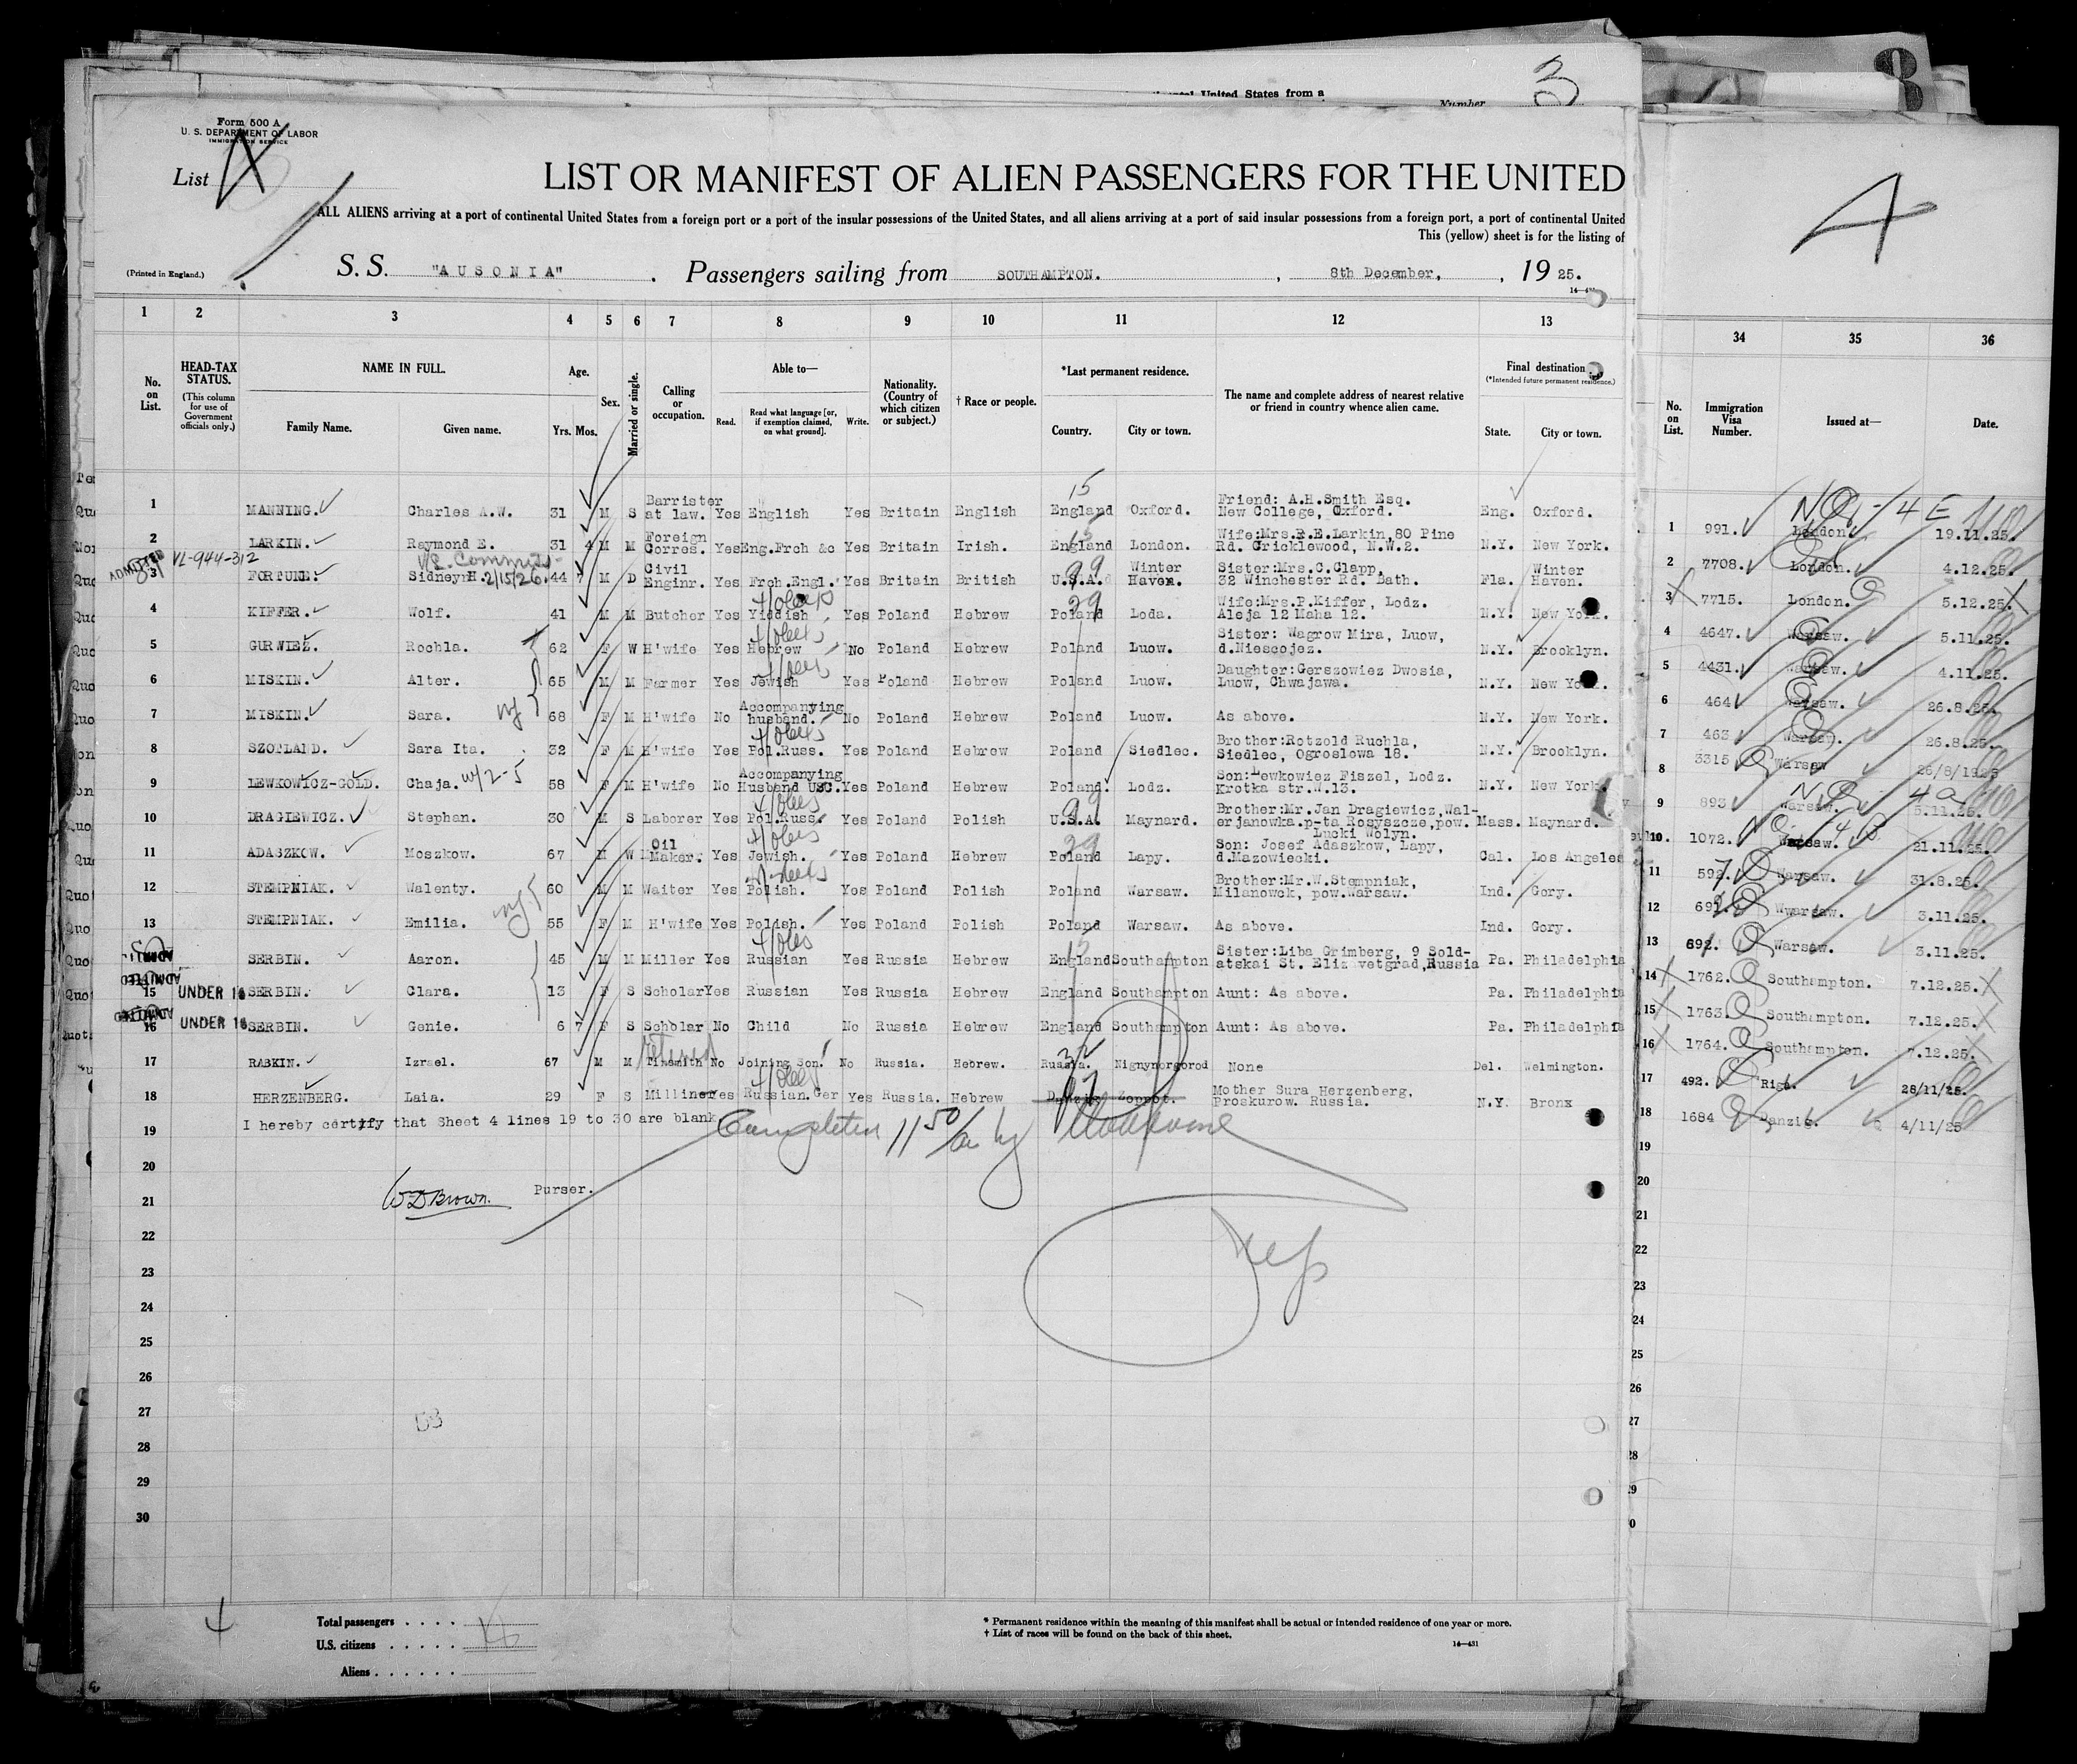 3
United States from a
Number
8
Form 500 A
U. S. DEPARTMENT OF LABOR
IMMIGRATION SERVICE
List
LIST OR MANIFEST OF ALIEN PASSENGERS FOR THE UNITED
ALL ALIENS arriving at a port of continental United States from a foreign port or a port of the insular possessions of the United States, and all aliens arriving at a port of said insular possessions from a foreign port, a port of continental United
This (yellow) sheet is for the listing of
(Printed in England.) S. S. "AUSONIA" . Passengers sailing from SOUTHAMPTON. , 8th December, , 19 25.
1 2 3 4 5 6 7 8 9 10 11 12 13 34 35 36
No. on List. HEAD-TAX STATUS. (This column for use of Government officials only.) NAME IN FULL. Family Name. Given name. Age. Yrs. Mos. Sex. Married or single. Calling or occupation. Able to— Read. Read what language [or, if exemption claimed, on what ground]. Write. Nationality. (Country of which citizen or subject.) † Race or people. *Last permanent residence. Country. City or town. The name and complete address of nearest relative or friend in country whence alien came. Final destination (*Intended future permanent residence.) State. City or town. No. on List. Immigration Visa Number. Issued at— Date.
1 MANNING. Charles A.W. 31 M S Barrister at law. Yes English Yes Britain English England Oxford. Friend: A.H.Smith Esq. New College, Oxford. Eng. Oxford. 1 991. London. 19.11.25.
2 LARKIN. Raymond E. 31 4 M M Foreign Corres. Yes Eng.Frch &c Yes Britain Irish. England London. Wife:Mrs.R.E.Larkin,80 Pine Rd. Cricklewood, N.W.2. N.Y. New York. 2 7708. London. 4.12.25.
ADMITTED VL-944-312 2/15/26
3 FORTUNE. Sidney H. 44 7 M D Civil Enginr. Yes Frch.Engl. Yes Britain British U.S.A. Winter Haven. Sister:Mrs.C.Clapp, 32 Winchester Rd. Bath. Fla. Winter Haven. 3 7715. London. 5.12.25.
4 KIFFER. Wolf. 41 M M Butcher Yes Yiddish Yes Poland Hebrew Poland Loda. Wife:Mrs.P.Kiffer, Lodz. Aleja 12 Maha 12. N.Y. New York. 4 4647. Warsaw. 5.11.25.
5 GURWIEZ. Rochla. 62 F W H'wife Yes Hebrew No Poland Hebrew Poland Luow. Sister: Wagrow Mira, Luow, d.Niescojez. N.Y. Brooklyn. 5 4431. Warsaw. 4.11.25.
6 MISKIN. Alter. 65 M M Farmer Yes Jewish Yes Poland Hebrew Poland Luow. Daughter:Gerszowiez Dwosia, Luow, Chwajawa. N.Y. New York. 6 464 Warsaw. 26.8.25.
7 MISKIN. Sara. 68 F M H'wife No Accompanying husband. No Poland Hebrew Poland Luow. As above. N.Y. New York. 7 463 Warsaw. 26.8.25.
8 SZOTLAND. Sara Ita. 32 F M H'wife Yes Pol.Russ. Yes Poland Hebrew Poland Siedlec. Brother:Rotzold Ruchla, Siedlec, Ogroslowa 18. N.Y. Brooklyn. 8 3315 Warsaw 26/8/1925
9 LEWKOWICZ-GOLD. Chaja. w/2-5 58 F M H'wife No Accompanying Husband USC. Yes Poland Hebrew Poland. Lodz. Son:Lewkowiez Fiszel, Lodz. Krotka str.N.13. N.Y. New York. 9 893 Warsaw. 5.11.25.
10 DRAGIEWICZ. Stephan. 30 M S Laborer Yes Pol.Russ. Yes Poland Polish U.S.A. Maynard. Brother:Mr.Jan Dragiewicz,Walerjanowka.p-ta Rosyszcze,pow. Lucki Wolyn. Mass. Maynard. 10 1072. Warsaw. 21.11.25.
11 ADASZKOW. Moszkow. 67 M W Oil Maker. Yes Jewish. Yes Poland Hebrew Poland Lapy. Son: Josef Adaszkow, Lapy, d.Mazowiecki. Cal. Los Angeles 11 592. Warsaw. 31.8.25.
12 STEMPNIAK. Walenty. 60 M M Waiter Yes Polish. Yes Poland Polish Poland Warsaw. Brother:Mr.W.Stempniak, Milanowck, pow.Warsaw. Ind. Gory. 12 Wwarsaw. 3.11.25.
13 STEMPNIAK. Emilia. 55 F M H'wife Yes Polish. Yes Poland Polish Poland Warsaw. As above. Ind. Gory. 13 692. Warsaw. 3.11.25.
SERBIN. Aaron. 45 M M Miller Yes Russian Yes Russia Hebrew England Southampton Sister:Liba Grimberg, 9 Soldatskai St. Elizavetgrad,Russia Pa. Philadelphia 14 1762. Southampton. 7.12.25.
ADMITTED
15 UNDER 16 SERBIN. Clara. 13 F S Scholar Yes Russian Yes Russia Hebrew England Southampton Aunt: As above. Pa. Philadelphia 15 1763. Southampton. 7.12.25.
ADMITTED
16 UNDER 16 SERBIN. Genie. 6 7 F S Scholar No Child No Russia Hebrew England Southampton Aunt: As above. Pa. Philadelphia 16 1764. Southampton. 7.12.25.
17 RASKIN. Izrael. 67 M M Tinsmith No Joining Son. No Russia. Hebrew. Russia. Nignynorgorod None Del. Welmington. 17 492. Riga. 28/11/25.
18 HERZENBERG. Laia. 29 F S Milliner Yes Russian.Ger Yes Russia. Hebrew Danzig Zoppot. Mother Sura Herzenberg, Proskurow. Russia. N.Y. Bronx 18 1684 Danzig. 4/11/25
I hereby certify that Sheet 4 lines 19 to 30 are blank
19 Completed 11 50/am by 19
20 20
21 W D Brown. Purser. 21
22 22
23 23
24 24
25 25
26 26
27 27
28 28
29 29
30 30
4
Total passengers . . . .
U.S. citizens . . . . .
Aliens . . . . . .
* Permanent residence within the meaning of this manifest shall be actual or intended residence of one year or more.
† List of races will be found on the back of this sheet.
14—431